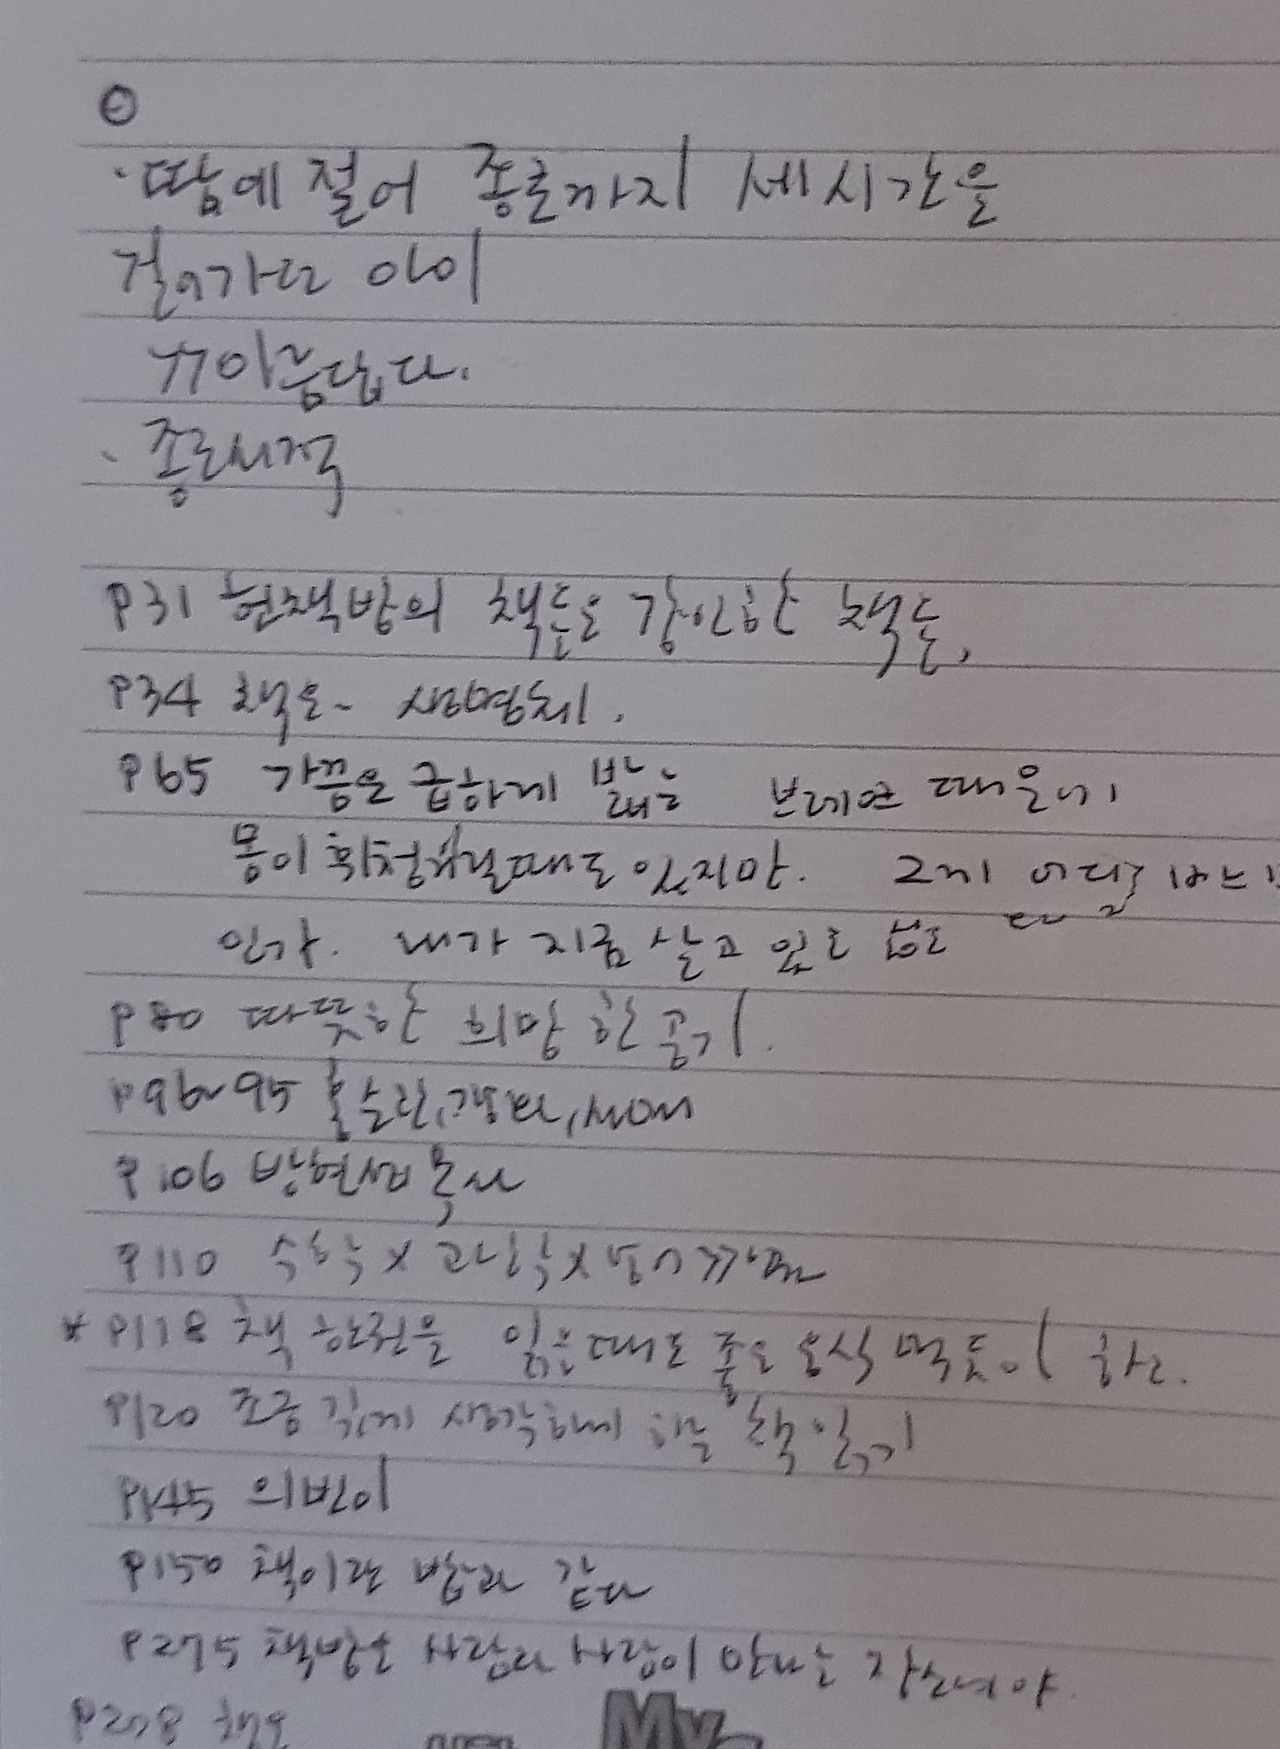 · 땀에 절어 종로까지 세시간을
걸어가던 아이
ㄲ아름답다.
· 종로서적
P31 헌책방의 책들은 강인한 책들,
P34 책은~ 생명체.
P65 가끔은 급하게 밟는 브레이크 때문에
몸이 휘청거릴때도 있지만.
인가. 내가 지금 살고 있는
P80 따뜻한 희망 한 공기.
P96~95
P106 목사
P110 수학 X 과학 X
* P118 책 한권을 읽을때도 좋은 음식 먹듯이 하라.
P120 조금 깊게 생각하게 하는 책읽기
P145 의
P150 책이란 밥과 같다
P275 책방은 사람과 사람이 만나는 장소여야
P278 책은
My